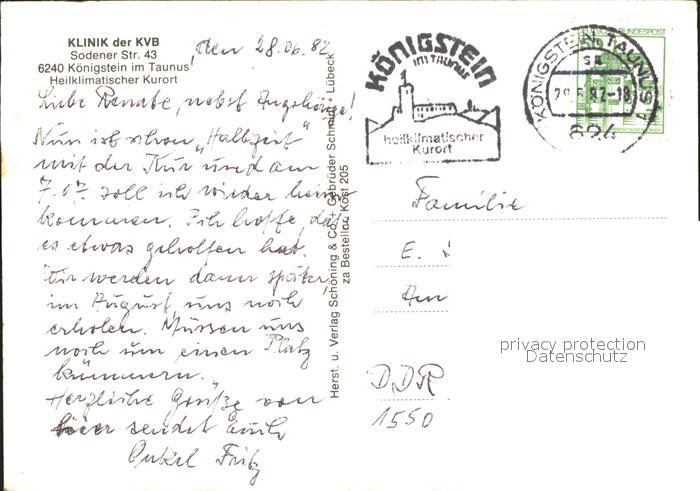 KLINIK der KVB
Sodener Str. 43
6240 Königstein im Taunus
Heilklimatischer Kurort
den 28.06.82
Liebe Renate, nebst Angehörige!
Nun ist schon "Halbzeit"
mit der Kur und am
7.07. soll ich wieder heim
kommen. Ich hoffe, daß
es etwas geholfen hat.
Wir werden dann später,
im August, uns noch
erholen. Müssen uns
noch um einen Platz
kümmern.
Herzliche Grüße von
hier sendet Euch
Onkel Fritz
Herst. u. Verlag Schöning & Co. + Gebrüder Schmidt, Lübeck
za Bestellnr. Köst 205
KÖNIGSTEIN
IM TAUNUS
heilklimatischer
Kurort
DEUTSCHE BUNDESPOST
KÖNIGSTEIN, TAUNUS 1
sa
29.6.82-18
624
Familie
E.
Am
DDR
1550
privacy protection
Datenschutz